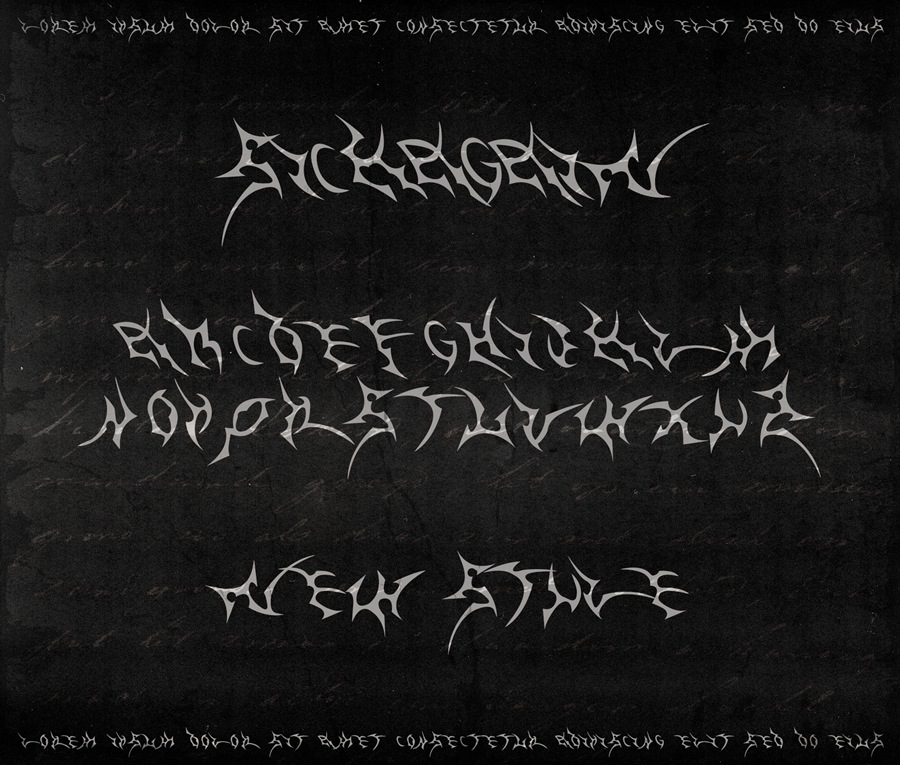 LOREM IPSUM DOLOR SIT AMET CONSECTETUR ADIPISCING ELIT SED DO EIUS
SICKAGAIN
ABCDEFGHIJKLM
NOPQRSTUVWXYZ
NEW STYLE
LOREM IPSUM DOLOR SIT AMET CONSECTETUR ADIPISCING ELIT SED DO EIUS